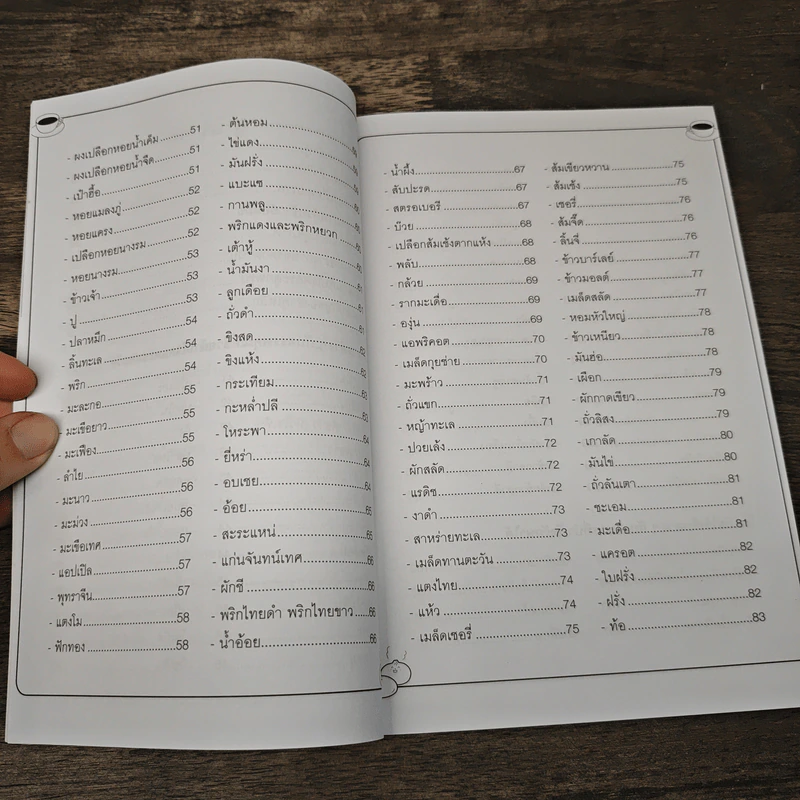 - ผงเปลือกหอยน้ำเค็ม..........51
- ผงเปลือกหอยน้ำจืด..........51
- เป๋าฮื้อ..........51
- หอยแมลงภู่..........52
- หอยแครง..........52
- เปลือกหอยนางรม..........52
- หอยนางรม..........53
- ข้าวเจ้า..........53
- ปู..........53
- ปลาหมึก..........54
- ลิ้นทะเล..........54
- พริก..........54
- มะละกอ..........55
- มะเขือยาว..........55
- มะเฟือง..........55
- ลำไย..........56
- มะนาว..........56
- มะม่วง..........56
- มะเขือเทศ..........57
- แอปเปิล..........57
- พุทราจีน..........57
- แตงโม..........58
- ฟักทอง..........58
- ต้นหอม..........
- ไข่แดง..........
- มันฝรั่ง..........
- แบะแซ..........
- กานพลู..........
- พริกแดงและพริกหยวก..........
- เต้าหู้..........
- น้ำมันงา..........
- ลูกเดือย..........
- ถั่วดำ..........61
- ขิงสด..........62
- ขิงแห้ง..........62
- กระเทียม..........
- กะหล่ำปลี..........63
- โหระพา..........64
- ยี่หร่า..........64
- อบเชย..........64
- อ้อย..........65
- สะระแหน่..........65
- แก่นจันทน์เทศ..........66
- ผักชี..........66
- พริกไทยดำ พริกไทยขาว.....66
- น้ำอ้อย..........66
- น้ำผึ้ง..........67
- สับปะรด..........67
- สตรอเบอรี..........67
- บ๊วย..........68
- เปลือกส้มเช้งตากแห้ง..........68
- พลับ..........68
- กล้วย..........69
- รากมะเดื่อ..........69
- องุ่น..........69
- แอพริคอต..........70
- เมล็ดกุยช่าย..........70
- มะพร้าว..........71
- ถั่วแขก..........71
- หญ้าทะเล..........71
- ปวยเล้ง..........72
- ผักสลัด..........72
- แรดิช..........72
- งาดำ..........73
- สาหร่ายทะเล..........73
- เมล็ดทานตะวัน..........73
- แตงไทย..........74
- แห้ว..........74
- เมล็ดเซอรี่..........75
- ส้มเขียวหวาน..........75
- ส้มเช้ง..........75
- เซอรี่..........76
- ส้มจี๊ด..........76
- ลิ้นจี่..........76
- ข้าวบาร์เลย์..........77
- ข้าวมอลต์..........77
- เมล็ดสลัด..........77
- หอมหัวใหญ่..........78
- ข้าวเหนียว..........78
- มันฮ่อ..........78
- เผือก..........79
- ผักกาดเขียว..........79
- ถั่วลิสง..........79
- เกาลัด..........80
- มันไข่..........80
- ถั่วลันเตา..........81
- ชะเอม..........81
- มะเดื่อ..........81
- แครอต..........82
- ใบฝรั่ง..........82
- ฝรั่ง..........82
- ท้อ..........83